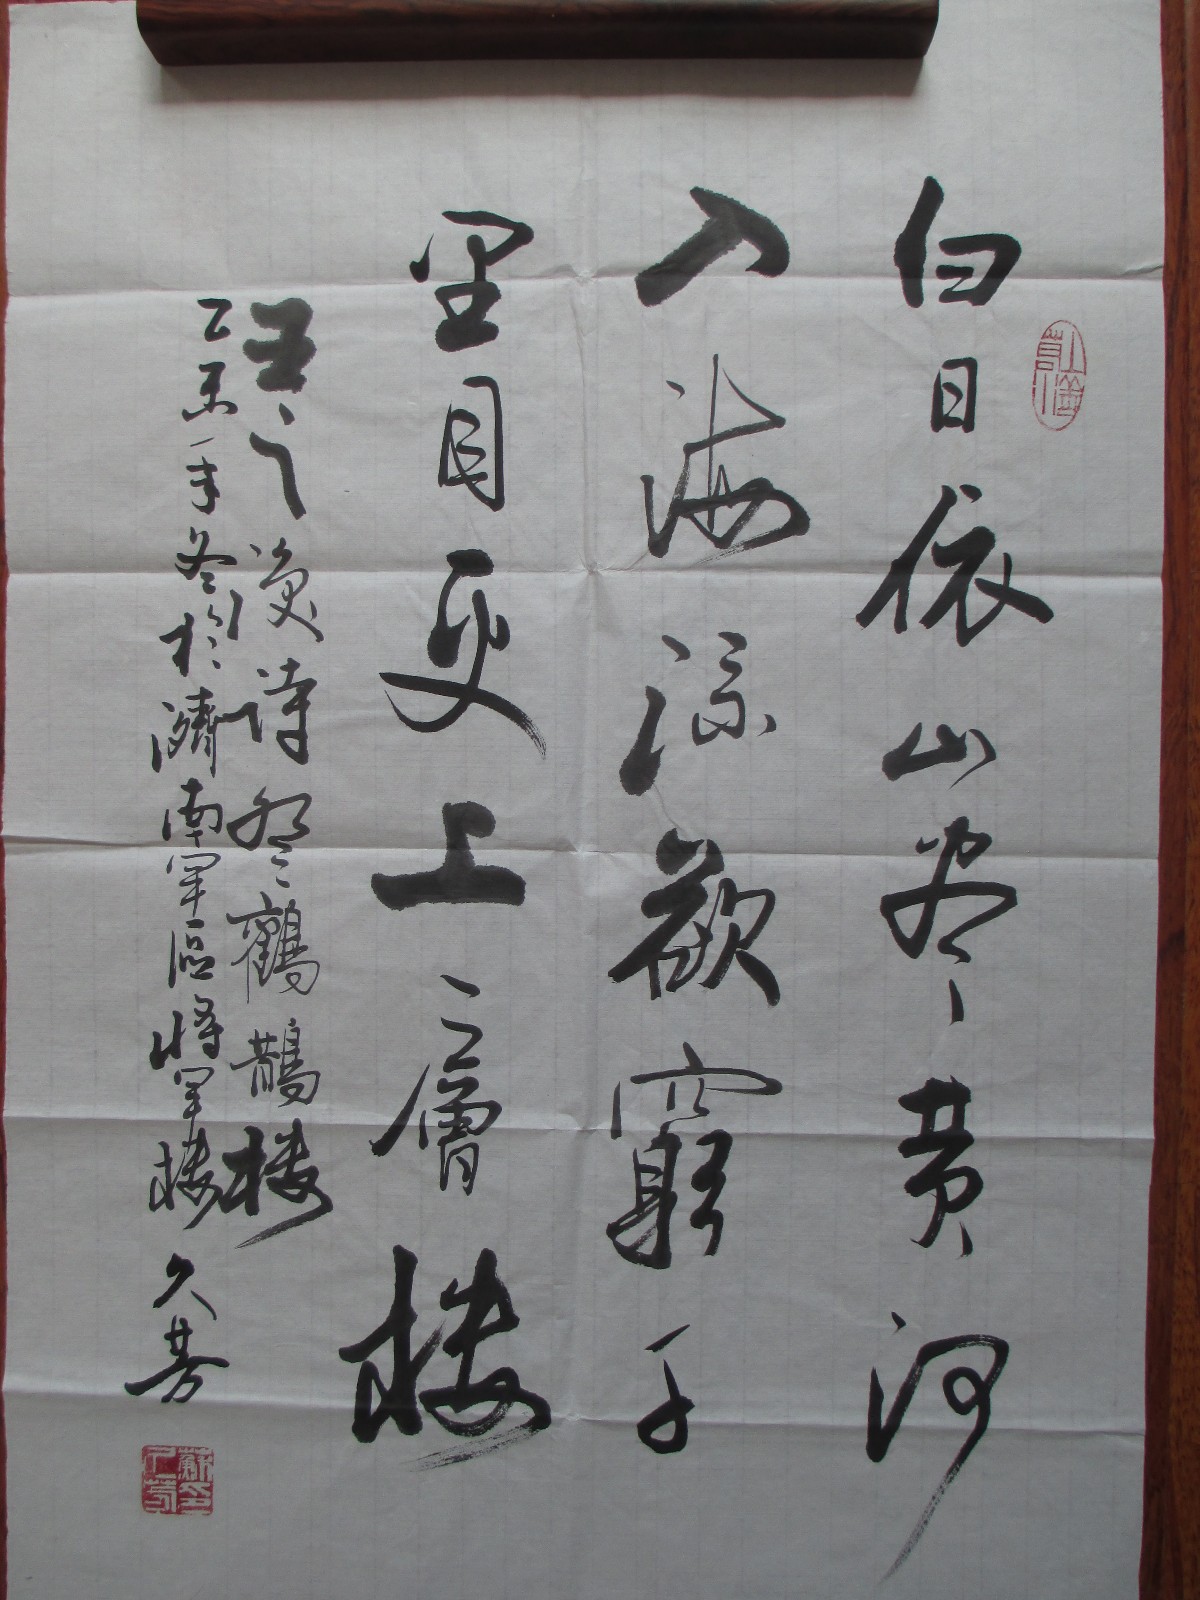 白日依山尽黄河
入海流欲窮千
里目更上一層楼
王之涣诗登鹳鹊楼
乙未年冬於濟南军區将军楼 久芳